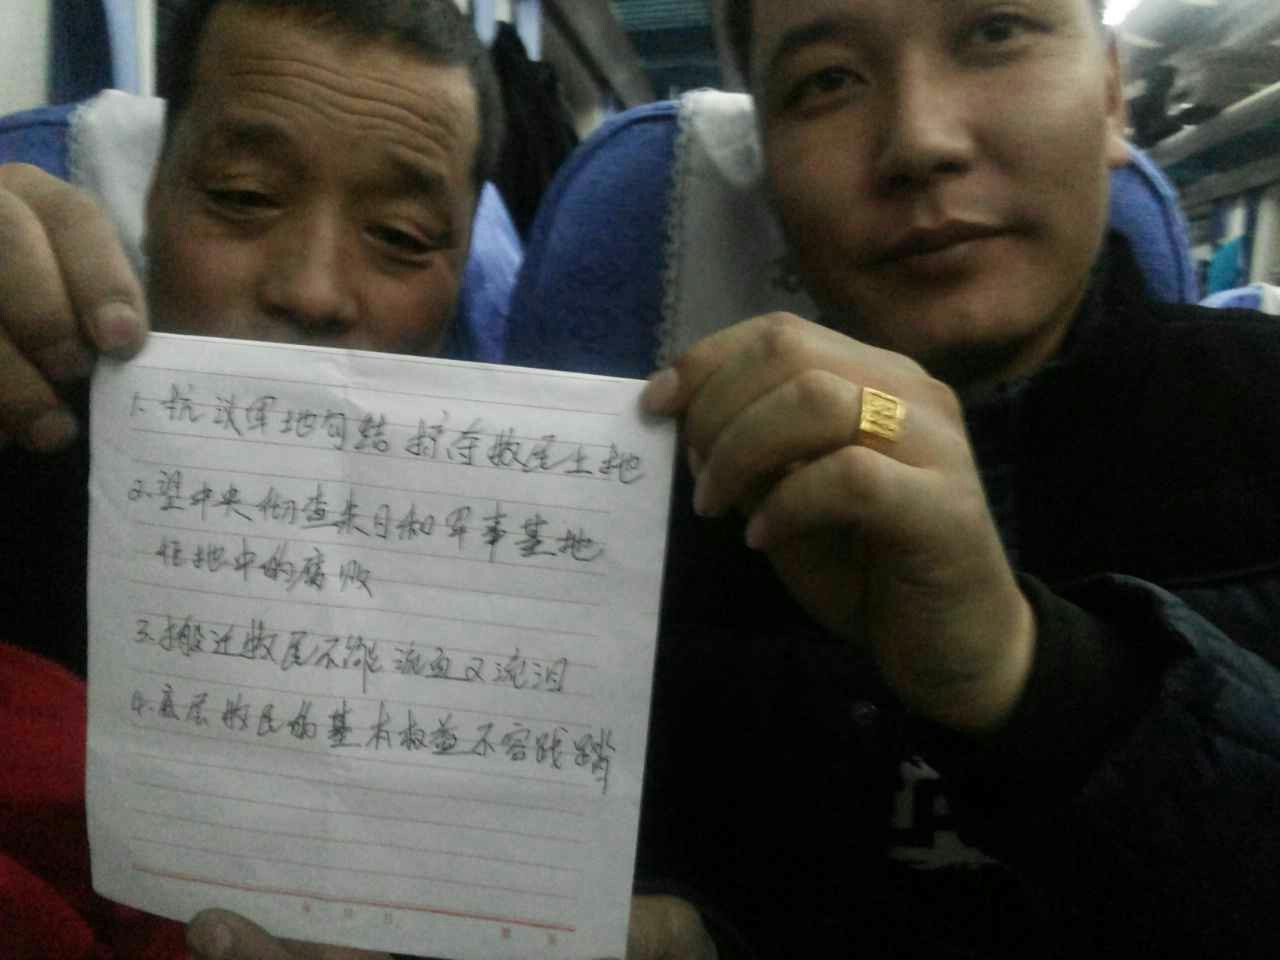 1. 抗议军地勾结掠夺牧民土地
2. 望中央彻查朱日和军事基地
征地中的腐败
3. 搬迁牧民不能流血又流泪
4. 底层牧民的基本权益不容践踏
年 月 日
第 页